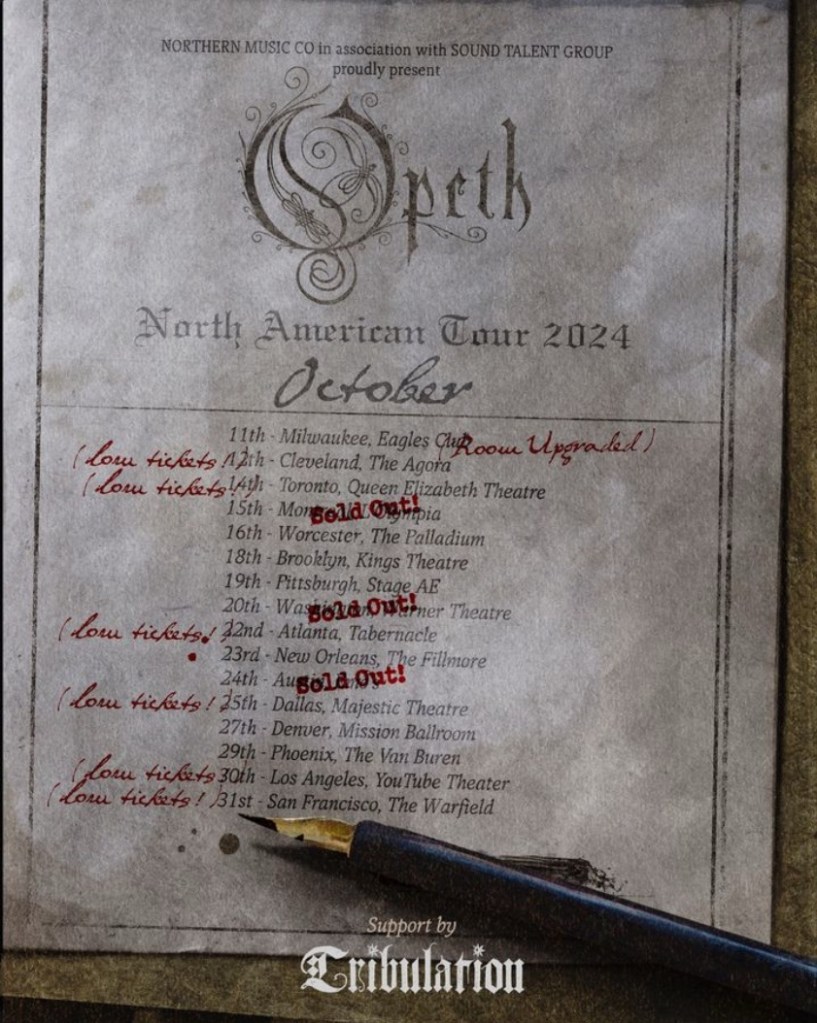 NORTHERN MUSIC CO in association with SOUND TALENT GROUP
proudly present
Opeth
North American Tour 2024
October
11th - Milwaukee, Eagles Club (Room Upgraded)
(low tickets!) 12th - Cleveland, The Agora
(low tickets!) 14th - Toronto, Queen Elizabeth Theatre
15th - Sold Out!
16th - Worcester, The Palladium
18th - Brooklyn, Kings Theatre
19th - Pittsburgh, Stage AE
20th - Washington, Warner Theatre Sold Out!
(low tickets!) 22nd - Atlanta, Tabernacle
23rd - New Orleans, The Fillmore
24th - Sold Out!
(low tickets!) 25th - Dallas, Majestic Theatre
27th - Denver, Mission Ballroom
29th - Phoenix, The Van Buren
(low tickets!) 30th - Los Angeles, YouTube Theater
(low tickets!) 31st - San Francisco, The Warfield
Support by
Tribulation